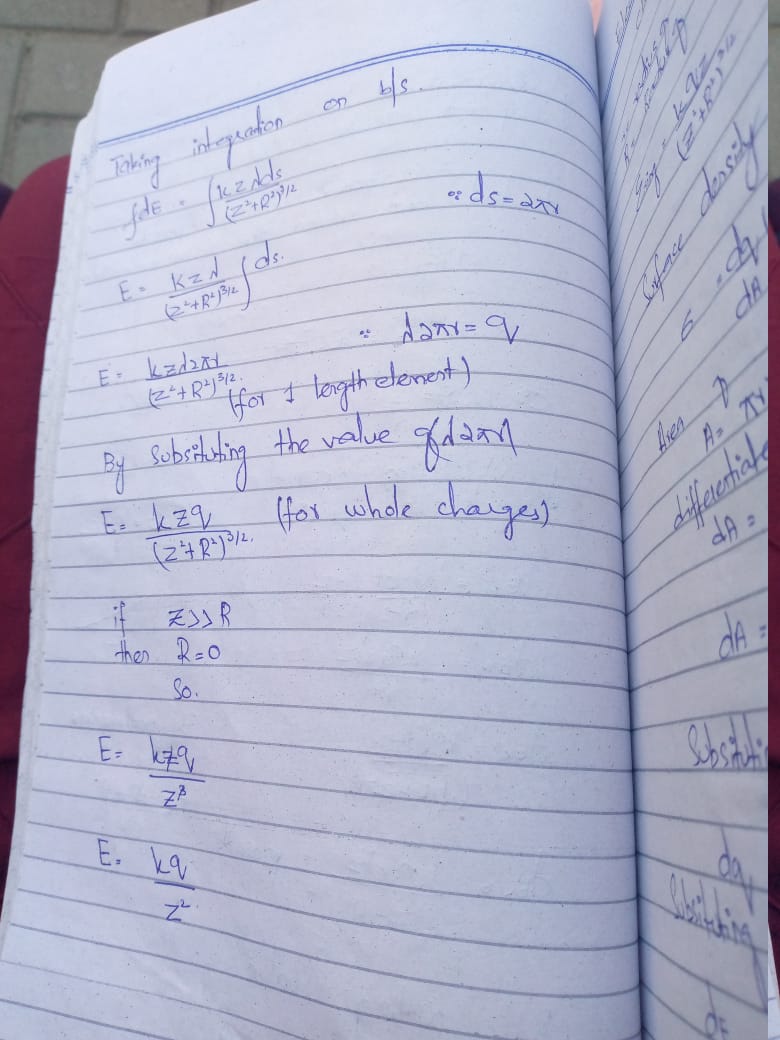 Taking integration on b/s.
∫dE = ∫ kzλds / (z²+R²)^3/2 ∵ ds = 2πr
E = kzλ / (z²+R²)^3/2 ∫ds.
E = kzλ2πr / (z²+R²)^3/2. ∵ λ2πr = q
(for 1 length element)
By Subsituting the value of λ2πr
E = kzq / (z²+R²)^3/2. (for whole charges)
if z>>R
then R=0
So.
E = kzq / z³
E = kq / z²
E ring = kqz / (z²+R²)^3/2
Surface density
6 = dq / dA
Area
A = πr
differentiate
dA =
dA =
dq
dE